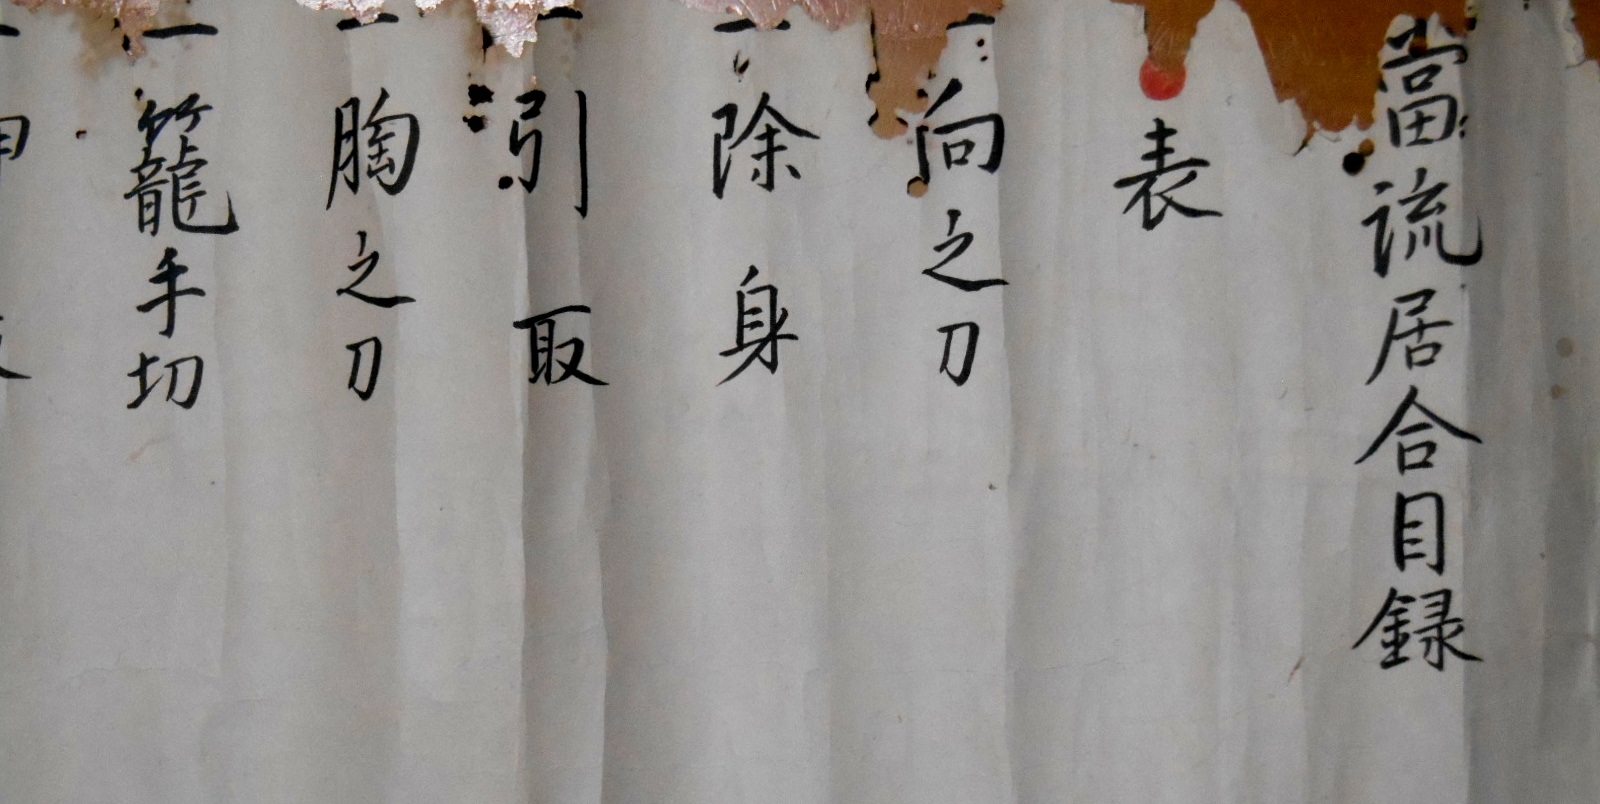 當流居合目録
表
一向之刀
一除身
一引取
一胸之刀
一籠手切